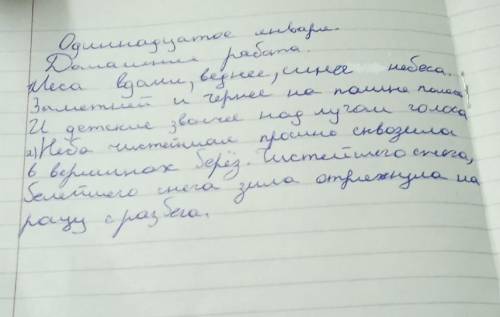 Одиннадцатое января.
Домашняя работа.
Леса вдали, виднее, синее небеса.
Заметней и чернее на пашне полоса
И детские звонче над лугом голоса
а) Неба чистейшая просинь сквозила
в вершинах берёз. Чистейшего снега,
белейшего снега зима отряхнула на
рощу с разбега.